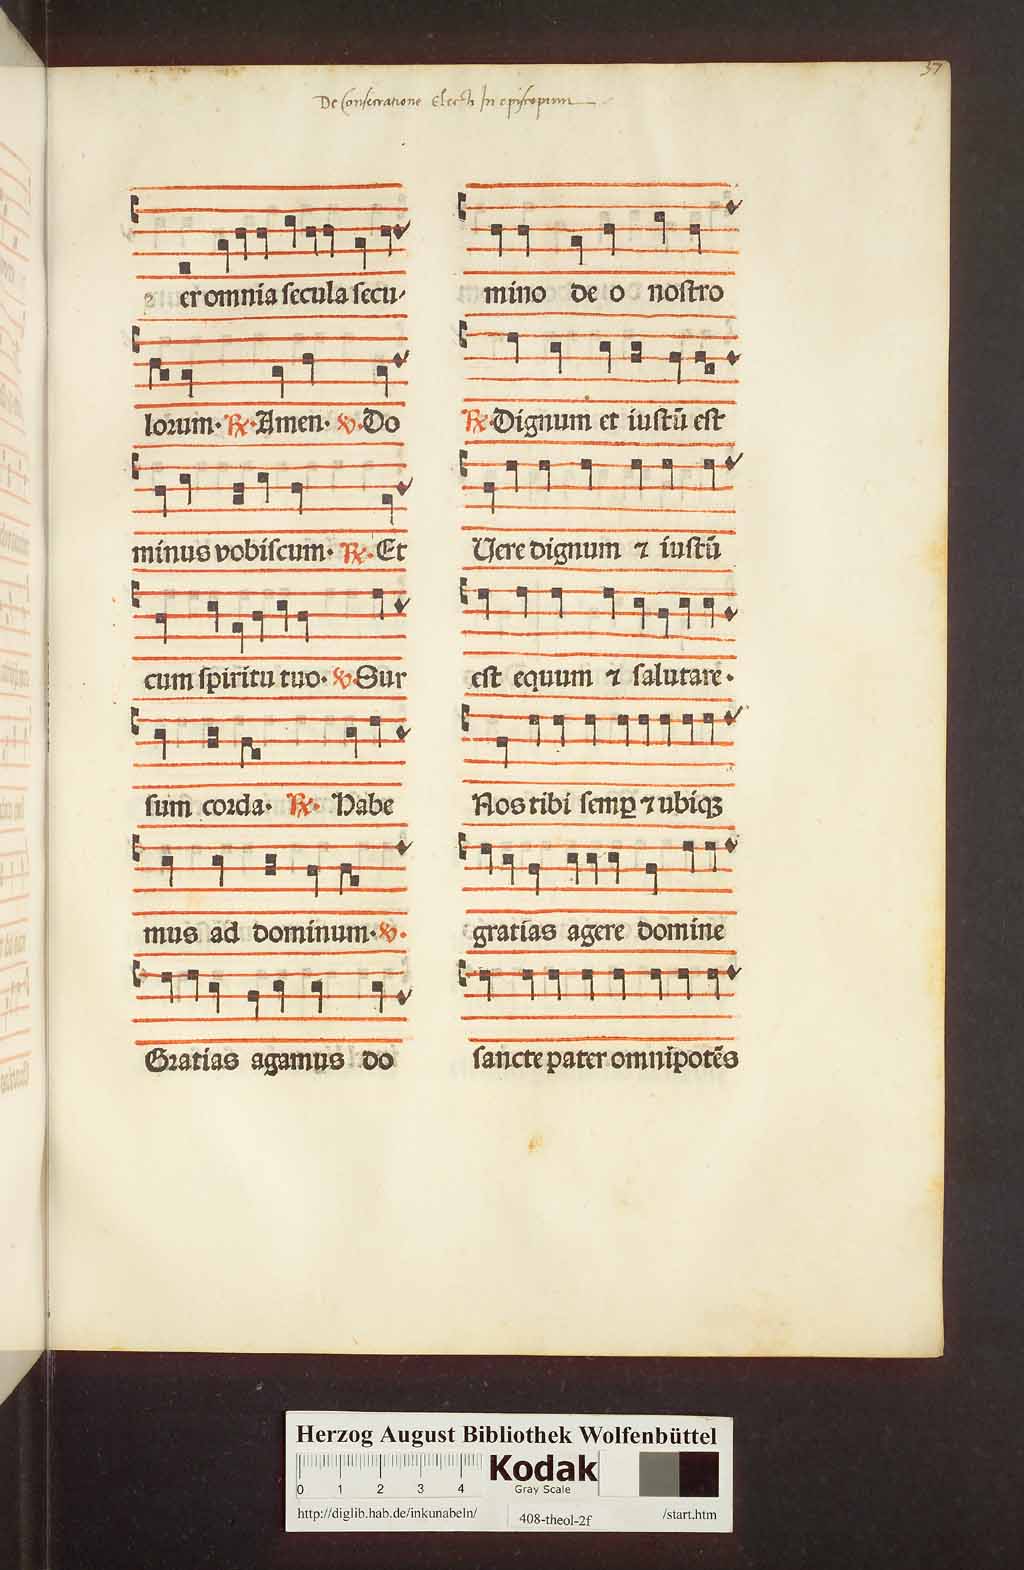 37
De Consecratione Electi In episcopum
er omnia secula secu/
lorum· ℟·Amen· ℣·Do
minus vobiscum· ℟·Et
cum spiritu tuo· ℣·Sur
sum corda· ℟· Habe
mus ad dominum·℣·
Gratias agamus do
mino deo nostro
℟·Dignum et iustū est
Uere dignum ⁊ iustū
est equum ⁊ salutare·
Nos tibi semꝑ ⁊ ubiqꝫ
gratias agere domine
sancte pater omnipotēs
Herzog August Bibliothek Wolfenbüttel
0 1 2 3 4
Kodak
Gray Scale
http://diglib.hab.de/inkunabeln/ 408-theol-2f /start.htm